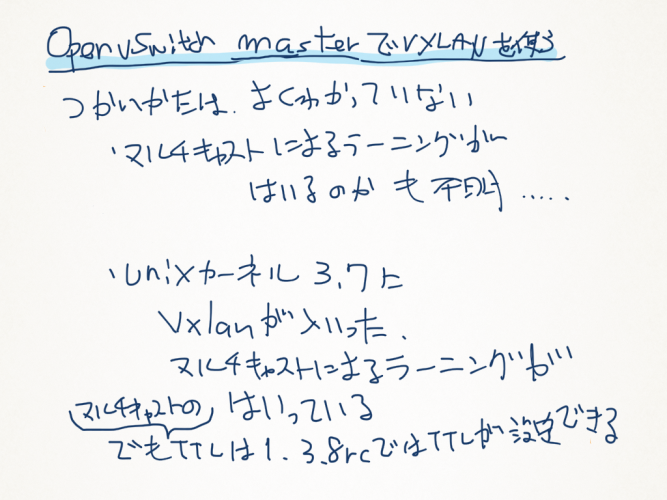 Open vSwitch masterでVXLANを使う
つかいかたは、よくわかっていない
・マルチキャストによるラーニングが
はいるのかも不明.....
・Unixカーネル3.7に
Vxlanが入った.
マルチキャストによるラーニングが
マルチキャストの はいっている
でもTTLは1. 3.8rcではTTLが設定できる